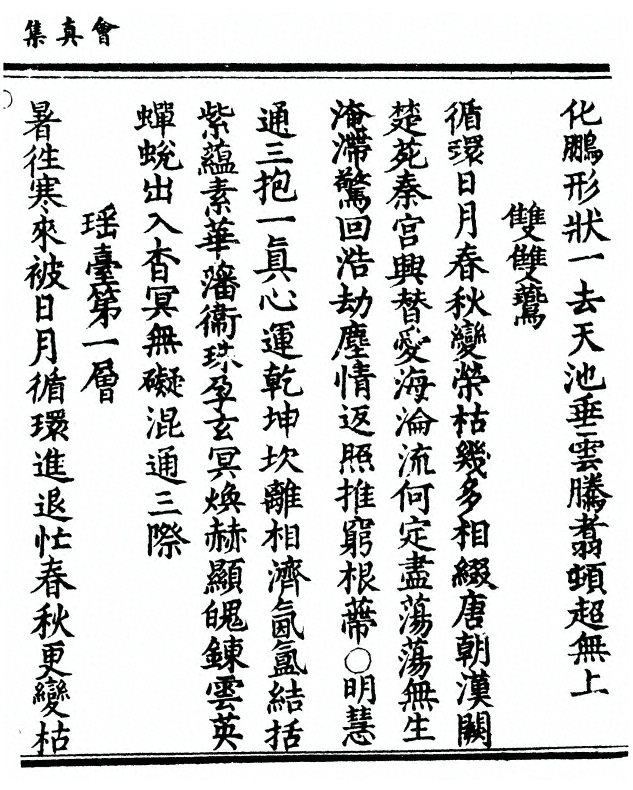 會真集
化鵬形狀一去天池垂雲騰翥頓超無上
雙雙鷰
循環日月春秋變榮枯幾多相綴唐朝漢闕
楚苑秦宮興替愛海淪流何定盡蕩蕩無生
淹滯驚回浩劫塵情返照推窮根蔕○明慧
通三抱一眞心運乾坤坎離相濟氤氳結括
紫蘊素華藩衞珠孕玄冥煥赫顯魄鍊雲英
蟬蛻出入杳冥無礙混通三際
瑶臺第一層
暑徃寒來被日月循環進退忙春秋更變枯